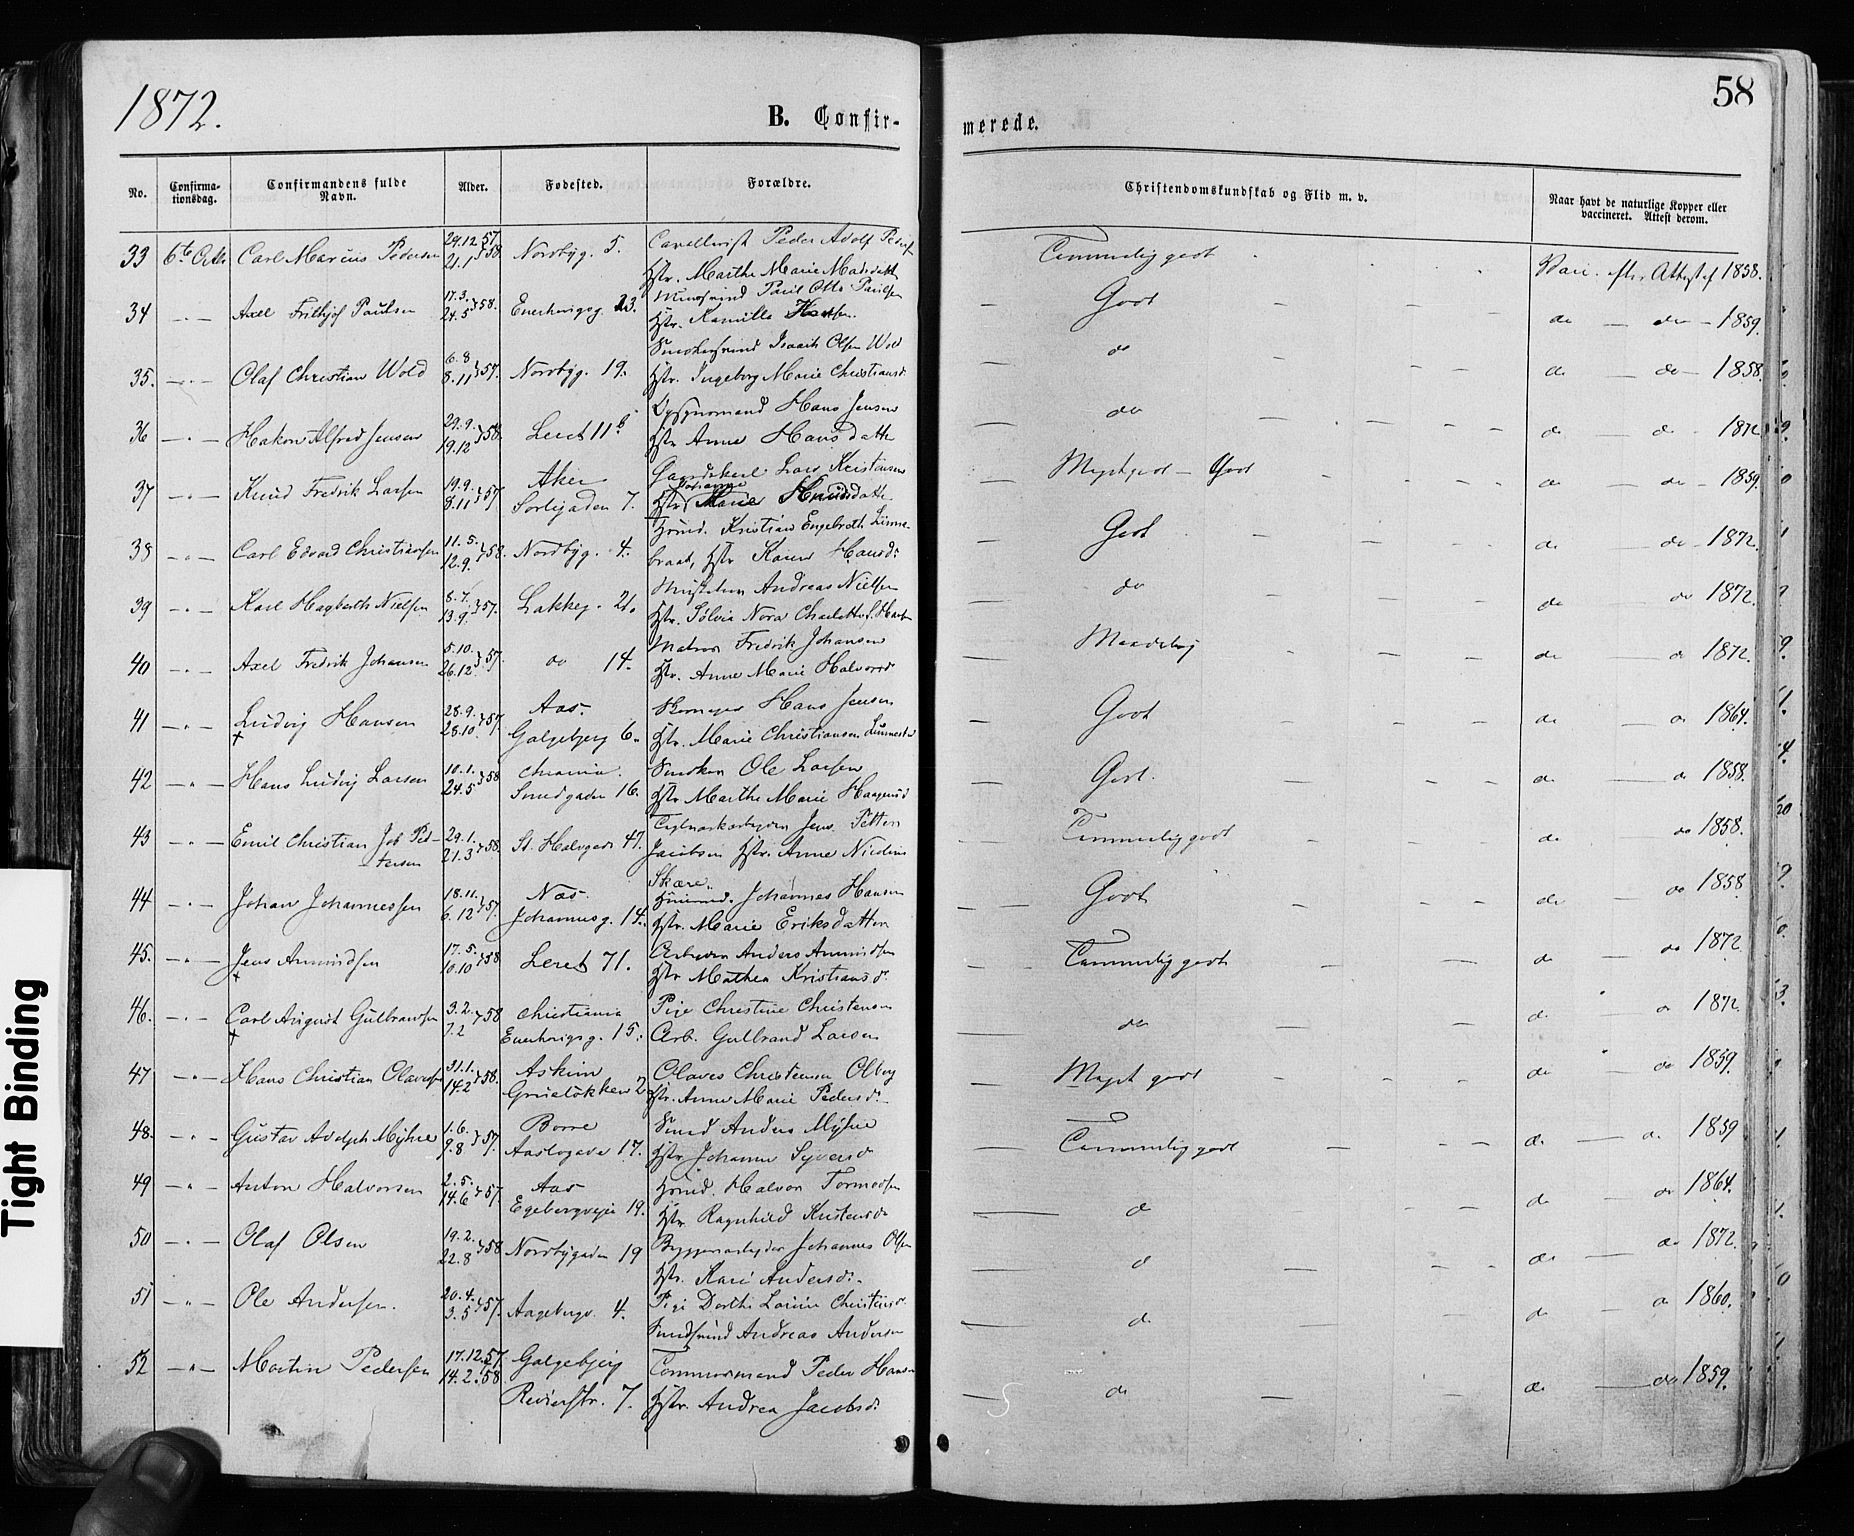 1872.
B. Confir-
merede.
58
No.
Confirma-
tionsdag.
Confirmandens fulde
Navn.
Alder.
Fødested.
Forældre.
Christendomskundskab og Flid m. v.
Naar havt de naturlige Kopper eller
vaccineret. Attest derom.
33 6te Octbr Carl Marius Pedersen 29.12.57 21.1 58 Nordbyg. 5. Peder Adolf
Hstr. Marthe Marie Madsdatter
Temmelig godt Vacc. Attest af 1858.
34 — " — Axel Frithjof Paulsen 17.3. 24.5 58. Enerhougsg. 23. Paul Otto Paulsen
Hstr. Kamilla
Godt do — do — 1859.
Isaach Olsen Wold
35. — " — Olaf Christian Wold 6.8 8.11 57. Nordbyg. 19. Hstr. Ingeborg Marie Christiansd.
do do — do — 1858.
Hans Jensen
36 — " — Hakon Alfred Jensen 29.9. 19.12 58. Leret 11 b Hstr. Anne Hansdatter
do do — do 1872
37 — " — Knud Fredrik Larsen 19.9. 8.11 57 Aker Lars Kristensen
Sorligaden 7. Hstr. Johanne Marie Knudsdatter
Meget godt — Godt do — do 1859.
38 — " — Carl Edvard Christiansen 11.5. 12.9. 58. Nordbyg. 4. Kristian Engebreth Linne-
braat, Hstr. Karen Hansd.
Godt do — do 1872.
39 — " — Karl Hagbarth Nielsen 8.7. 13.9. 57. Lakkeg. 21. Andreas Nielsen
Hstr. Sølvia Nora Charlotte
do do — do 1872.
40 — " — Axel Fredrik Johansen 5.10. 26.12. 57. do 14. Matros Fredrik Johansen
Hstr. Anne Marie Halvorsd.
Maadelig do — do 1872.
41 — " — Ludvig Hansen 28.9. 28.10. 57. Aas. Hans Jensen
Galgebjerg 6. Hstr. Marie Christiansen
Godt do — do 1864.
42 — " — Hans Ludvig Larsen 10.1. 24.5 58 Chrania. Snedker Ole Larsen
Smedgaden 16. Hstr. Marthe Marie
Godt. do — do 1858.
43 — " — Emil Christian Job Pet-
tersen 29.1. 21.3 58. St. Halvgade 47. Teglværksarbeider Jens Petter
Jacobsen Hstr. Anne
Temmelig godt do do 1858.
44 — " — Johan Johannessen 18.11. 6.12 57. Næs. Skære
Johannesg. 14. Johannes Hansen
Hstr. Marie Eriksdatter
Godt do do 1858
45. — " — Jens Amundsen 17.5. 10.10 58 Leret 71. Arbeider Anders Amundsen
Hstr. Mathea Kristiansd.
Temmelig godt do do 1872
46. — " — Carl August Gulbrandsen 3.2. 7.2 58 Christiania Pige Christine Christensen
Enerhougsg. 15. Arb. Gulbrand Larsen
do do do 1872.
47 — " — Hans Christian Olavesen 31.1. 14.2 58. Askim Olaves Christensen Olberg
Grueløkken 2 Hstr. Anne Marie Pedersd.
Meget godt do do 1859.
48. — " — Gustav Adolph Myhre 1.6. 9.8 57. Borre Smed Anders Myhre
Aaslogade 17. Hstr. Johanne Syversd.
Temmelig godt do — do 1859
49 — " Anton Halvorsen 2.5. 14.6 57. Aas Halvor Tormodsen
Egebergveien 19. Hstr. Ragnhild
do do do 1864.
50 — " — Olaf Olsen 19.2. 22.8 58 Nordbygaden 19 Johannes Olsen
Hstr. Kari Andersd.
do do do 1872.
51 — " — Ole Andersen. 20.4. 3.5 57. Aagebergv. 4. Pige Dorthe Lovise
Andreas Andersen
do do do 1860.
52 — " — Martin Pedersen 17.12.57 14.2.58 Galgebjerg Tømmermand Peder Hansen
Revierstr. 7. Hstr. Andrea Jacobsd.
do do — do 1859.
Tight Binding